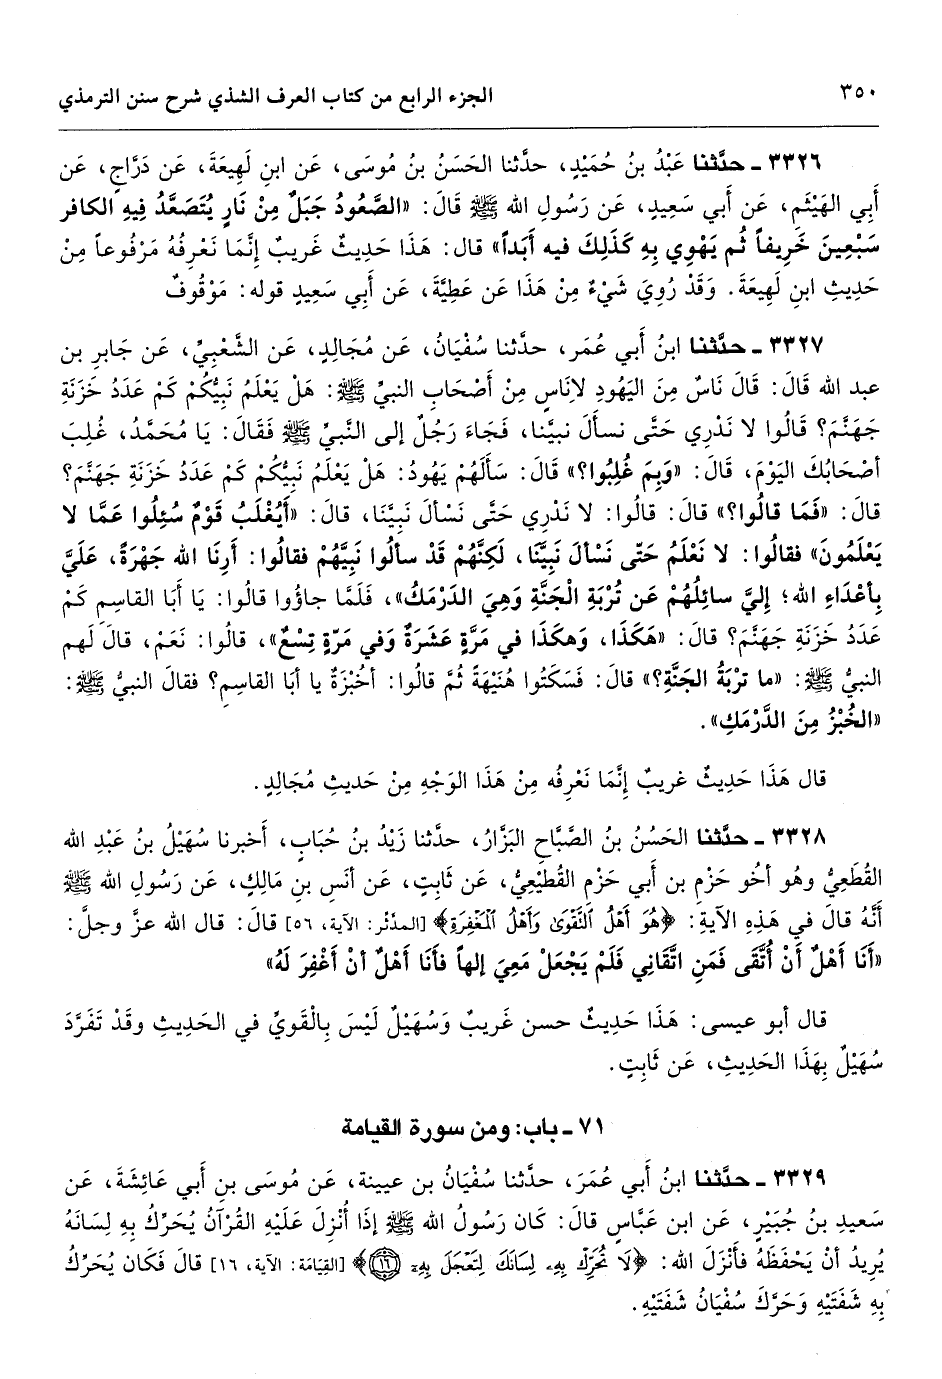 ٣٥٠
الجزء الرابع من كتاب العرف الشذي شرح سنن الترمذي
٣٣٢٦ ـ حدَّثنا عَبْدُ بنُ حُمَيْدٍ، حدَّثنا الحَسَنُ بنُ مُوسَى، عَن ابنِ لَهِيعَةَ، عَن دَرَّاجٍ، عَن
أَبِي الهَيْثَمِ، عَن أَبي سَعِيدٍ، عَن رَسُولِ الله ﷺ قَالَ: «الصَّعُودُ جَبَلٌ مِنْ نَارٍ يُتَصَعَّدُ فِيهِ الكافر
سَبْعِينَ خَرِيفاً ثُم يَهْوِي بِهِ كَذَلِكَ فيه أَبَداً» قال: هَذَا حَدِيثٌ غَرِيبٌ إنَّمَا نَعْرِفُهُ مَرْفُوعاً مِنْ
حَدِيثِ ابنِ لَهِيعَةَ. وَقَدْ رُوِيَ شَيْءٌ مِنْ هَذَا عَن عَطِيَّةَ، عَن أَبِي سَعِيدٍ قوله: مَوْقُوفٌ
٣٣٢٧ ـ حدَّثنا ابنُ أَبي عُمَر، حدَّثنا سُفْيَانُ، عَن مُجَالِدٍ، عَن الشَّعْبِيِّ، عَن جَابرِ بن
عبد الله قَالَ: قَالَ نَاسٌ مِنَ اليَهُودِ لأنَاسٍ مِنْ أَصْحَابِ النبيِّ ﷺ: هَلْ يَعْلَمُ نَبِيُّكُمْ كَمْ عَدَدُ خَزَنَةِ
جَهَنَّمَ؟ قَالُوا لا نَدْرِي حَتَّى نسأَلَ نبيَّنا، فَجَاءَ رَجُلٌ إلى النَّبيِّ ﷺ فَقَالَ: يَا مُحَمَّدُ، غُلِبَ
أصْحَابُكَ اليَوْمَ، قَالَ: «وَبِمَ غُلِبُوا؟» قَالَ: سَأَلَهُمْ يَهُودُ: هَلْ يَعْلَمُ نَبِيُّكُم كَمْ عَدَدُ خَزَنَةِ جَهَنَّمَ؟
قالَ: «فَمَا قالُوا؟» قالَ: قالُوا: لا نَدْرِي حَتَّى نَسْأَلَ نَبِيَّنَا، قالَ: «أَيُغْلَبُ قَوْمٌ سُئِلُوا عَمَّا لا
يَعْلَمُونَ» فقالُوا: لا نَعْلَمُ حَتّى نَسْأَلَ نَبِيَّنَا، لَكِنَّهُمْ قَدْ سألُوا نَبِيَّهُمْ فقالُوا: أرِنَا الله جَهْرَةً، عَلَيَّ
بِأعْدَاءِ الله؛ إلِيَّ سائِلُهُمْ عَن تُرْبَةِ الجَنَّةِ وَهِيَ الدَرْمَكُ»، فَلَمَّا جاؤُوا قالُوا: يَا أَبَا القاسِمِ كَمْ
عَدَدُ خَزَنَةِ جَهَنَّمَ؟ قالَ: «هَكَذَا، وَهكَذَا في مَرَّةٍ عَشَرَةٌ وَفي مَرّةٍ تِسْعٌ»، قالُوا: نَعَمْ، قالَ لَهم
النبيُّ ﷺ: «ما تربَةُ الجَنَّةِ؟» قالَ: فَسَكَتُوا هُنَيْهَةً ثُمَّ قالُوا: أخُبْزَةٌ يا أبَا القاسِمِ؟ فقالَ النبيُّ ﷺ:
«الخُبْزُ مِنَ الدَّرْمَكِ».
قال هَذَا حَدِيثٌ غريبٌ إنَّمَا نَعْرِفُه مِنْ هَذَا الوَجْهِ مِنْ حَديثِ مُجَالِدٍ.
٣٣٢٨ ـ حدَّثنا الحَسُنُ بنُ الصَّبَّاحِ البَزَّارُ، حدَّثنا زَيْدُ بنُ حُبَابٍ، أَخبرنا سُهَيْلُ بنُ عَبْدِ الله
القُطَعِيُّ وهُو أخُو حَزْمِ بن أَبي حَزْمٍ القُطَيْعِيُّ، عَن ثَابِتٍ، عَن أنَسِ بنِ مَالِكٍ، عَن رَسُولِ الله ﷺ
أَنَّهُ قالَ في هَذِهِ الآيةِ: ﴿هُوَ أَهْلُ ٱلنَّقْوَىٰ وَأَهْلُ ٱلْمَغْفِرَةِ﴾ [المدّثر: الآية، ٥٦] قالَ: قال الله عزَّ وجلَّ:
«أَنَا أَهْلٌ أَنْ أُتَّقَى فَمَنِ اتَّقَانِي فَلَمْ يَجْعَلْ مَعِيَ إلهاً فأنَا أَهْلٌ أنْ أغْفِرَ لَهُ»
قال أبو عيسى: هَذَا حَدِيثٌ حسن غَريبٌ وَسُهَيْلٌ لَيْسَ بِالْقوِيِّ في الحَدِيثِ وقَدْ تَفَرَّدَ
سُهَيْلٌ بِهَذَا الحَدِيثِ، عَن ثَابِتٍ.
٧١ ـ باب: ومن سورة القيامة
٣٣٢٩ ـ حدَّثنا ابنُ أَبي عُمَرَ، حدَّثنا سُفْيَانُ بن عيينة، عَن مُوسَى بنِ أَبي عائِشَةَ، عَن
سَعِيدِ بنُ جُبَيْرٍ، عَن ابن عَبَّاسٍ قالَ: كَان رَسُولُ الله ﷺ إذَا أُنْزِلَ عَلَيْهِ القُرْآنُ يُحَرِّكُ بِهِ لِسَانَهُ
يُرِيدُ أنْ يَحْفَظَهُ فأنْزَلَ الله: ﴿لَا تُحَرِّكْ بِهِۦ لِسَانَكَ لِتَعْجَلَ بِهِۦٓ ١٦﴾ [القِيَامَة: الآية، ١٦] قالَ فَكان يُحَرِّكُ
بِهِ شَفَتَيْهِ وَحَرَّكَ سُفْيَانُ شَفَتَيْهِ.